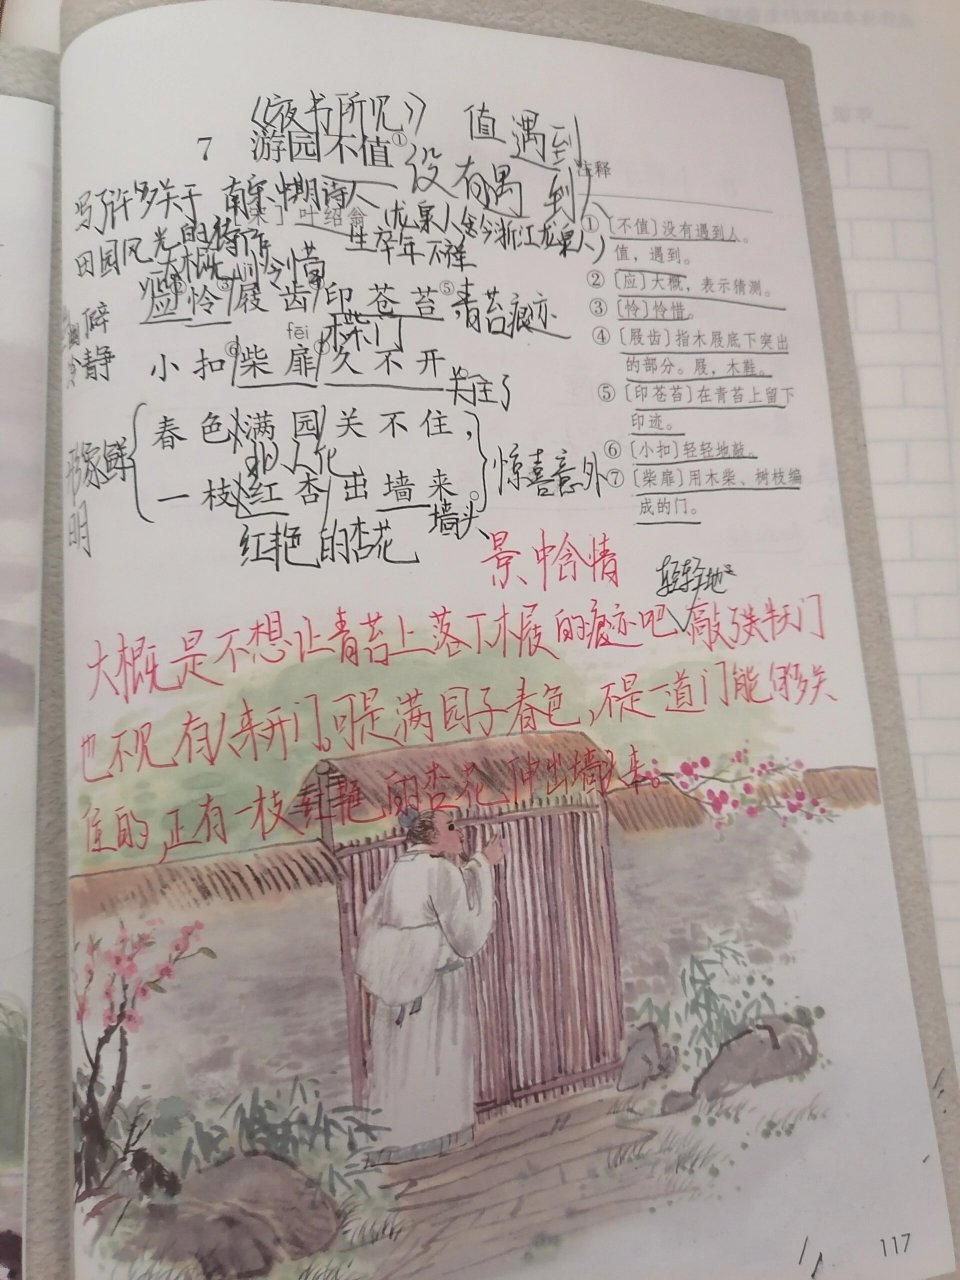 《夜书所见》 值 遇到
7 游园不值① 没有遇到人
写了许多关于 南宋中期诗人
[宋]叶绍翁 龙泉人(今浙江龙泉人)
田园风光的诗作 生卒年不详
大概
应②怜③屐④齿印苍苔⑤ 青苔痕迹
fēi 柴门
静
小扣⑥柴扉⑦久不开
关住了
春色满园关不住，
形象鲜明
一枝红杏出墙来。 惊喜意外
墙头
红艳的杏花
注释
①〔不值〕没有遇到人。
值，遇到。
②〔应〕大概，表示猜测。
③〔怜〕怜惜。
④〔屐齿〕指木屐底下突出
的部分。屐，木鞋。
⑤〔印苍苔〕在青苔上留下
印迹。
⑥〔小扣〕轻轻地敲。
⑦〔柴扉〕用木柴、树枝编
成的门。
景中含情
轻轻地
大概是不想让青苔上落下木屐的痕迹吧，敲柴门
也不见有人来开门。可是满园子春色，不是一道门能够关
住的，正有一枝红艳的杏花伸出墙头来。
117